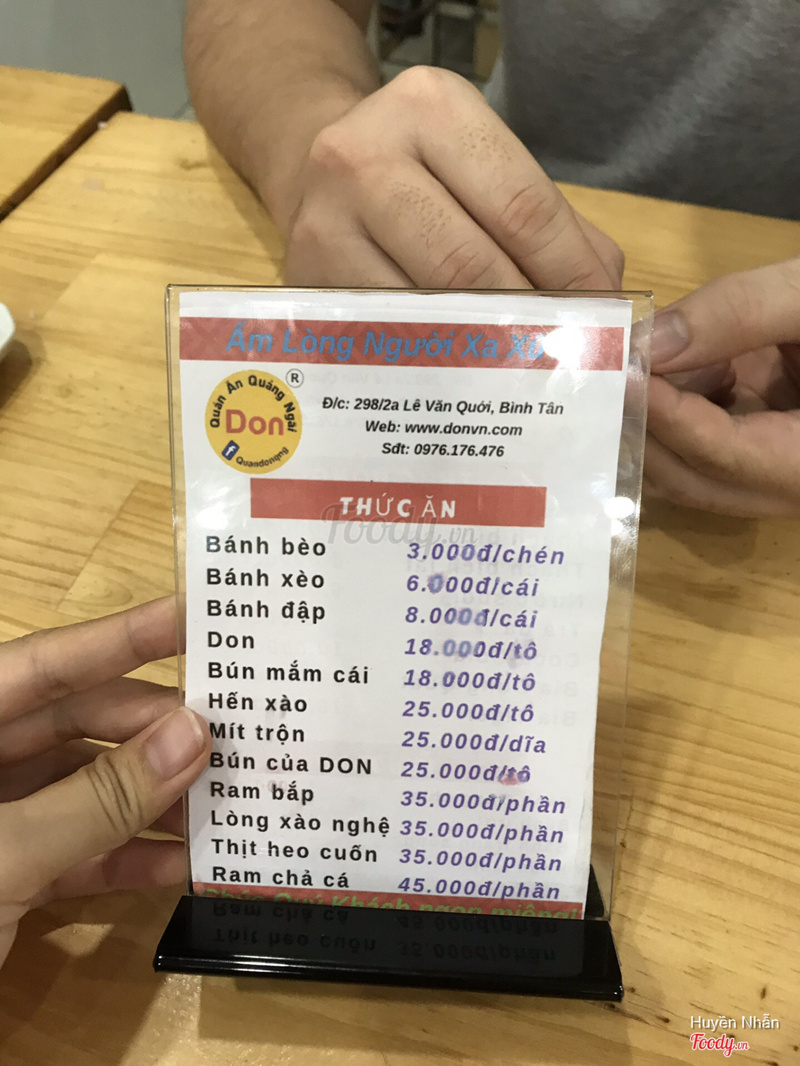 Ấm Lòng Người Xa
Quán Ăn Quảng Ngãi
®
Don
Quandonqng
Đ/c: 298/2a Lê Văn Quới, Bình Tân
Web: www.donvn.com
Sđt: 0976.176.476
THỨC ĂN
Foody.vn
Bánh bèo 3.000đ/chén
Bánh xèo 6.000đ/cái
Bánh đập 8.000đ/cái
Don 18.000đ/tô
Bún mắm cái 18.000đ/tô
Hến xào 25.000đ/tô
Mít trộn 25.000đ/dĩa
Bún của DON 25.000đ/tô
Ram bắp 35.000đ/phần
Lòng xào nghệ 35.000đ/phần
Thịt heo cuốn 35.000đ/phần
Ram chả cá 45.000đ/phần
Chúc Quý Khách ngon miệng!
Huyền Nhẫn
Foody.vn